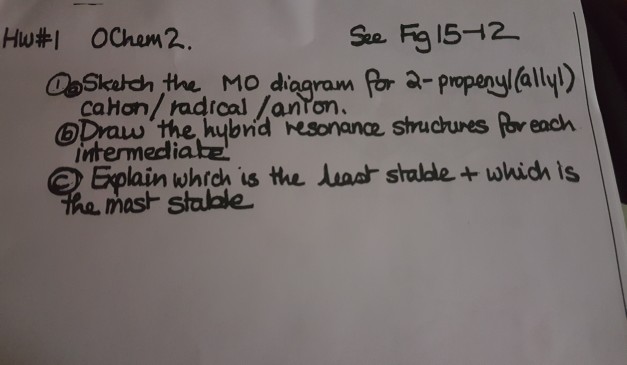 HW#1 OChem2. See Fig 15-12
①ⓐSketch the MO diagram for 2-propenyl(allyl)
cation/radical/anion.
ⓑDraw the hybrid resonance structures for each
intermediate
ⓒ Explain which is the least stable + which is
the most stable